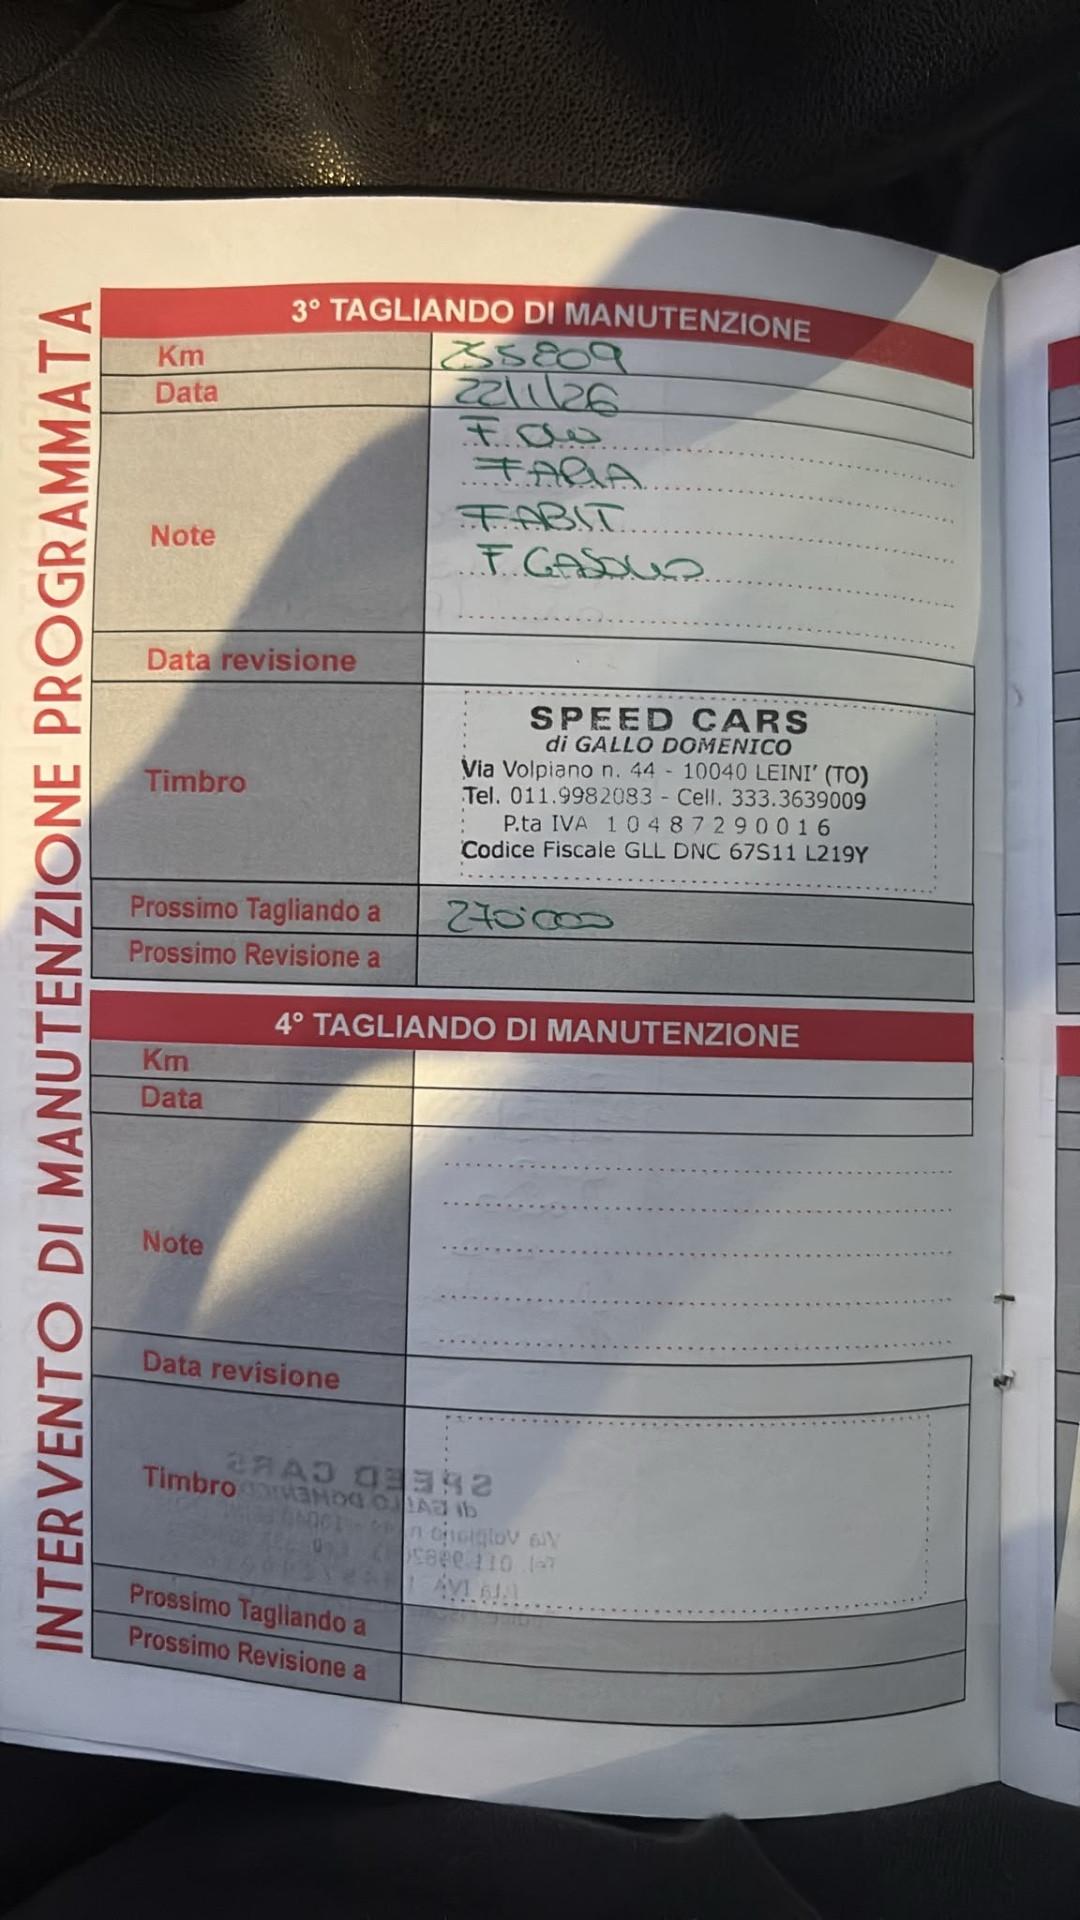 INTERVENTO DI MANUTENZIONE PROGRAMMATA
3° TAGLIANDO DI MANUTENZIONE
Km 255809
Data 22/1/26
Note F. OLIO
F ARIA
F ABIT
F GASOLIO
Data revisione
Timbro
SPEED CARS
di GALLO DOMENICO
Via Volpiano n. 44 - 10040 LEINI' (TO)
Tel. 011.9982083 - Cell. 333.3639009
P.ta IVA 10487290016
Codice Fiscale GLL DNC 67S11 L219Y
Prossimo Tagliando a 270'000
Prossimo Revisione a
4° TAGLIANDO DI MANUTENZIONE
Km
Data
Note
Data revisione
Timbro
SPEED CARS
di GALLO DOMENICO
Via Volpiano n.
Tel. 011.9982
P.ta IVA 1
Prossimo Tagliando a
Prossimo Revisione a